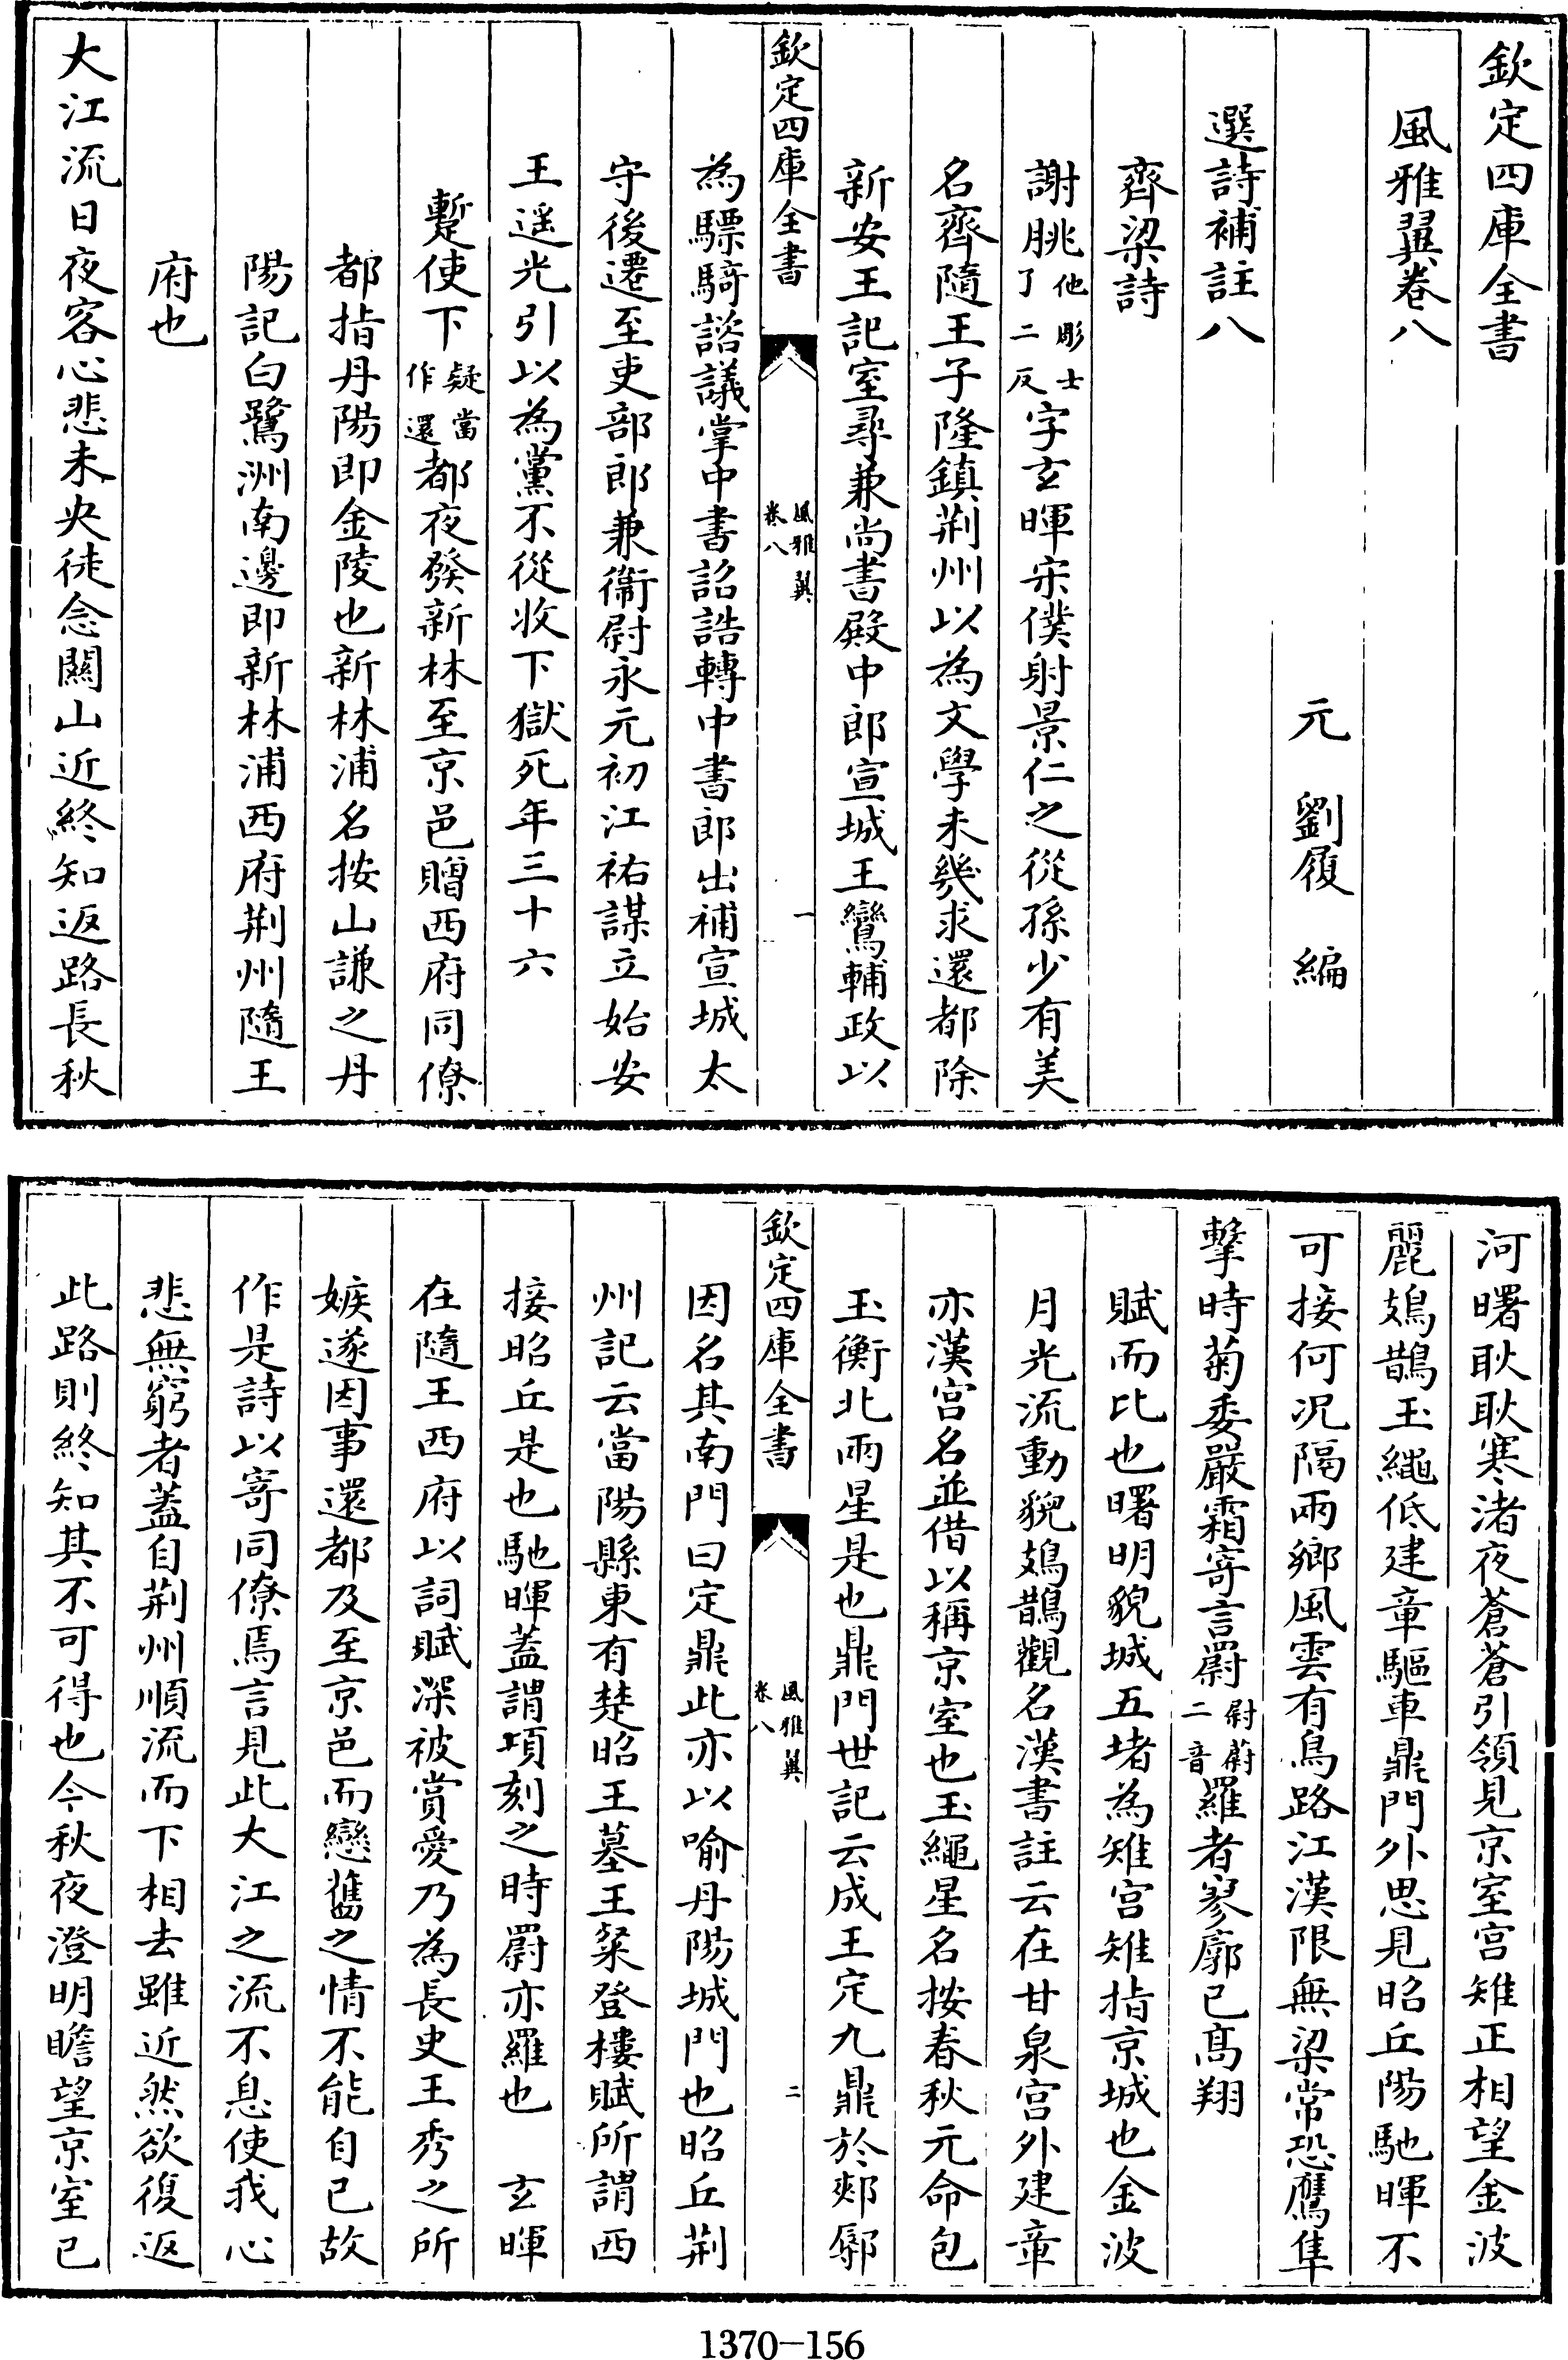 欽定四庫全書
風雅翼卷八
元　劉履　編
選詩補註八
齊梁詩
謝朓他彫士了二反字玄暉宋僕射景仁之從孫少有美
名齊隨王子隆鎮荆州以為文學未幾求還都除
新安王記室尋兼尚書殿中郎宣城王鸞輔政以
欽定四庫全書
風雅翼
卷八
一
為驃騎諮議掌中書詔誥轉中書郎出補宣城太
守後遷至吏部郎兼衞尉永元初江祐謀立始安
王遥光引以為黨不從收下獄死年三十六
蹔使下疑當作還都夜發新林至京邑贈西府同僚
都指丹陽即金陵也新林浦名按山謙之丹
陽記白鷺洲南邊即新林浦西府荆州隨王
府也
大江流日夜客心悲未央徒念關山近終知返路長秋
河曙耿耿寒渚夜蒼蒼引領見京室宫雉正相望金波
麗鳷鵲玉繩低建章驅車鼎門外思見昭丘陽馳暉不
可接何况隔兩鄉風雲有鳥路江漢限無梁常恐鷹隼
擊時菊委嚴霜寄言罻尉蔚二音羅者寥廓已髙翔
賦而比也曙明貌城五堵為雉宫雉指京城也金波
月光流動貌鳷鵲觀名漢書註云在甘泉宫外建章
亦漢宫名並借以稱京室也玉繩星名按春秋元命包
玉衡北兩星是也鼎門世記云成王定九鼎於郟鄏
欽定四庫全書
風雅翼
卷八
二
因名其南門曰定鼎此亦以喻丹陽城門也昭丘荆
州記云當陽縣東有楚昭王墓王粲登樓賦所謂西
接昭丘是也馳暉蓋謂頃刻之時罻亦羅也　玄暉
在隨王西府以詞賦深被賞愛乃為長史王秀之所
嫉遂因事還都及至京邑而戀舊之情不能自已故
作是詩以寄同僚焉言見此大江之流不息使我心
悲無窮者蓋自荆州順流而下相去雖近然欲復返
此路則終知其不可得也今秋夜澄明瞻望京室已
1370-156